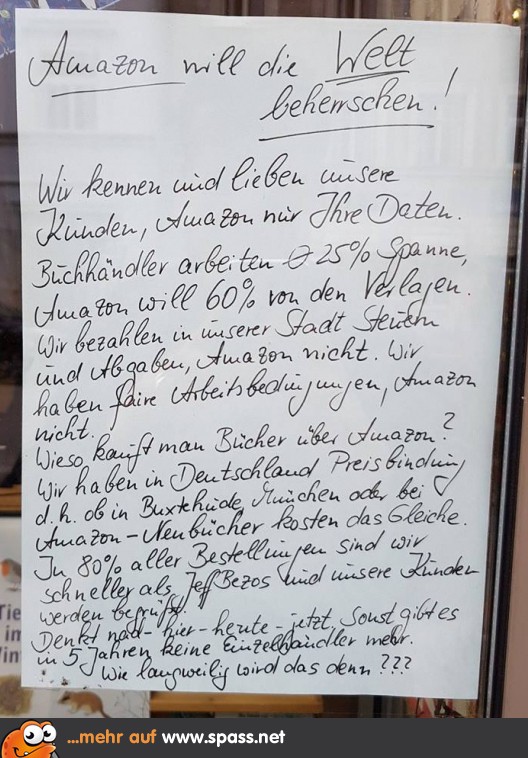 Amazon will die Welt
beherrschen!
Wir kennen und lieben unsere
Kunden, Amazon nur Ihre Daten.
Buchhändler arbeiten Ø 25% Spanne,
Amazon will 60% von den Verlagen.
Wir bezahlen in unserer Stadt Steuern
und Abgaben, Amazon nicht. Wir
haben faire Arbeitsbedingungen, Amazon
nicht.
Wieso kauft man Bücher über Amazon?
Wir haben in Deutschland Preisbindung
d.h. ob in Buxtehude, München oder bei
Amazon - Neubücher kosten das Gleiche.
In 80% aller Bestellungen sind wir
schneller als Jeff Bezos und unsere Kunden
werden begrüßt.
Denkt nach - hier - heute - jetzt, sonst gibt es
in 5 Jahren keine Einzelhändler mehr.
Wie langweilig wird das denn???
Tie
im
Win
...mehr auf www.spass.net